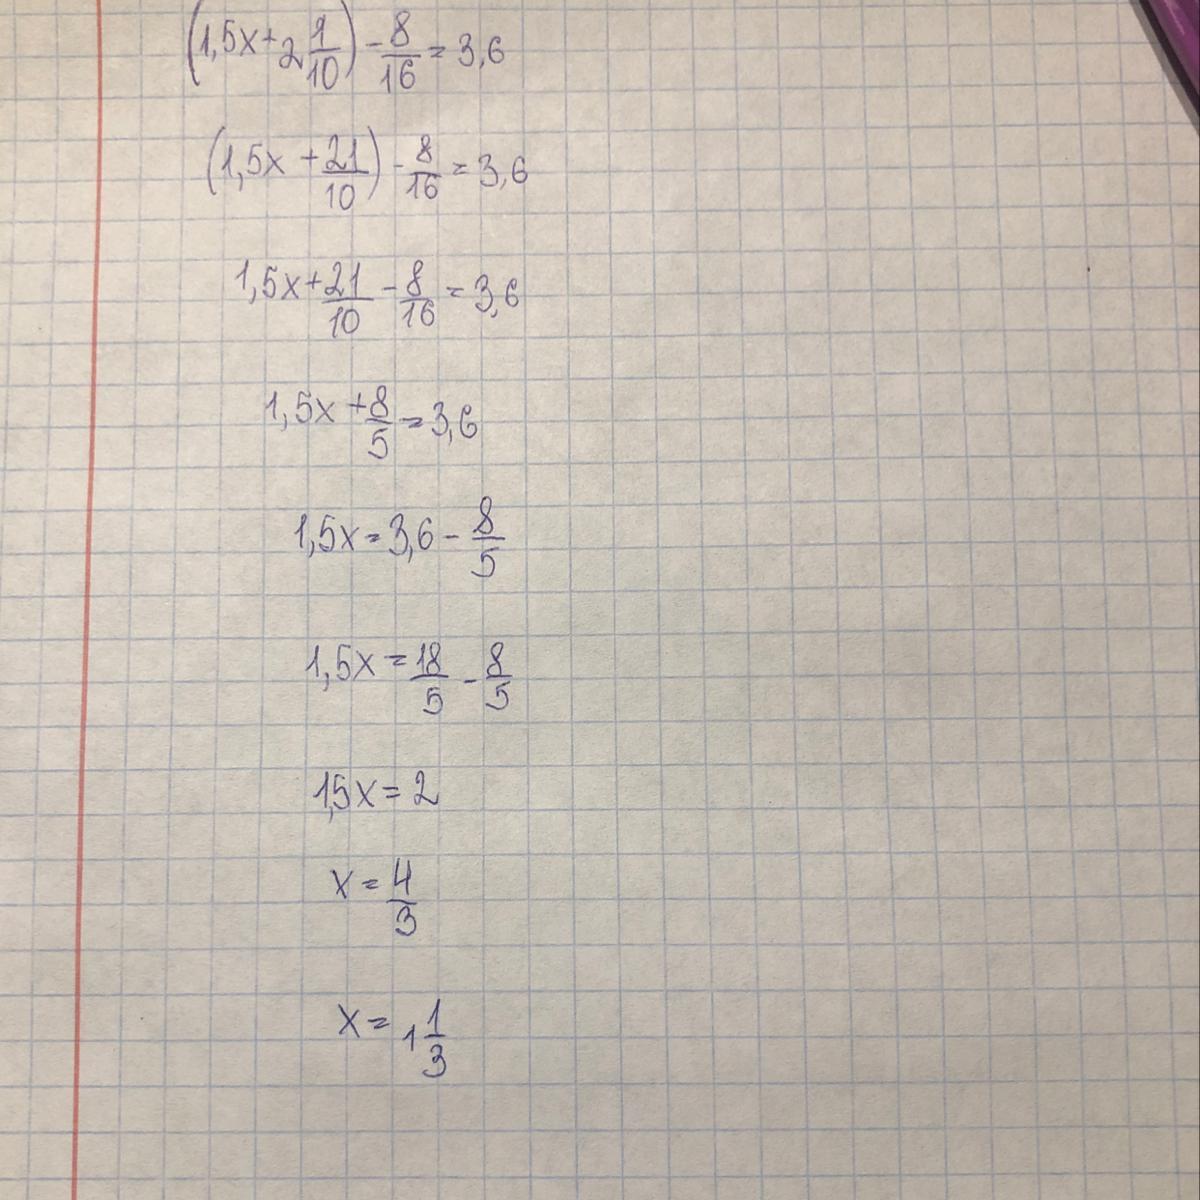 (1,5x + 2 1/10) - 8/16 = 3,6
(1,5x + 21/10) - 8/16 = 3,6
1,5x + 21/10 - 8/16 = 3,6
1,5x + 8/5 = 3,6
1,5x = 3,6 - 8/5
1,5x = 18/5 - 8/5
1,5x = 2
x = 4/3
x = 1 1/3